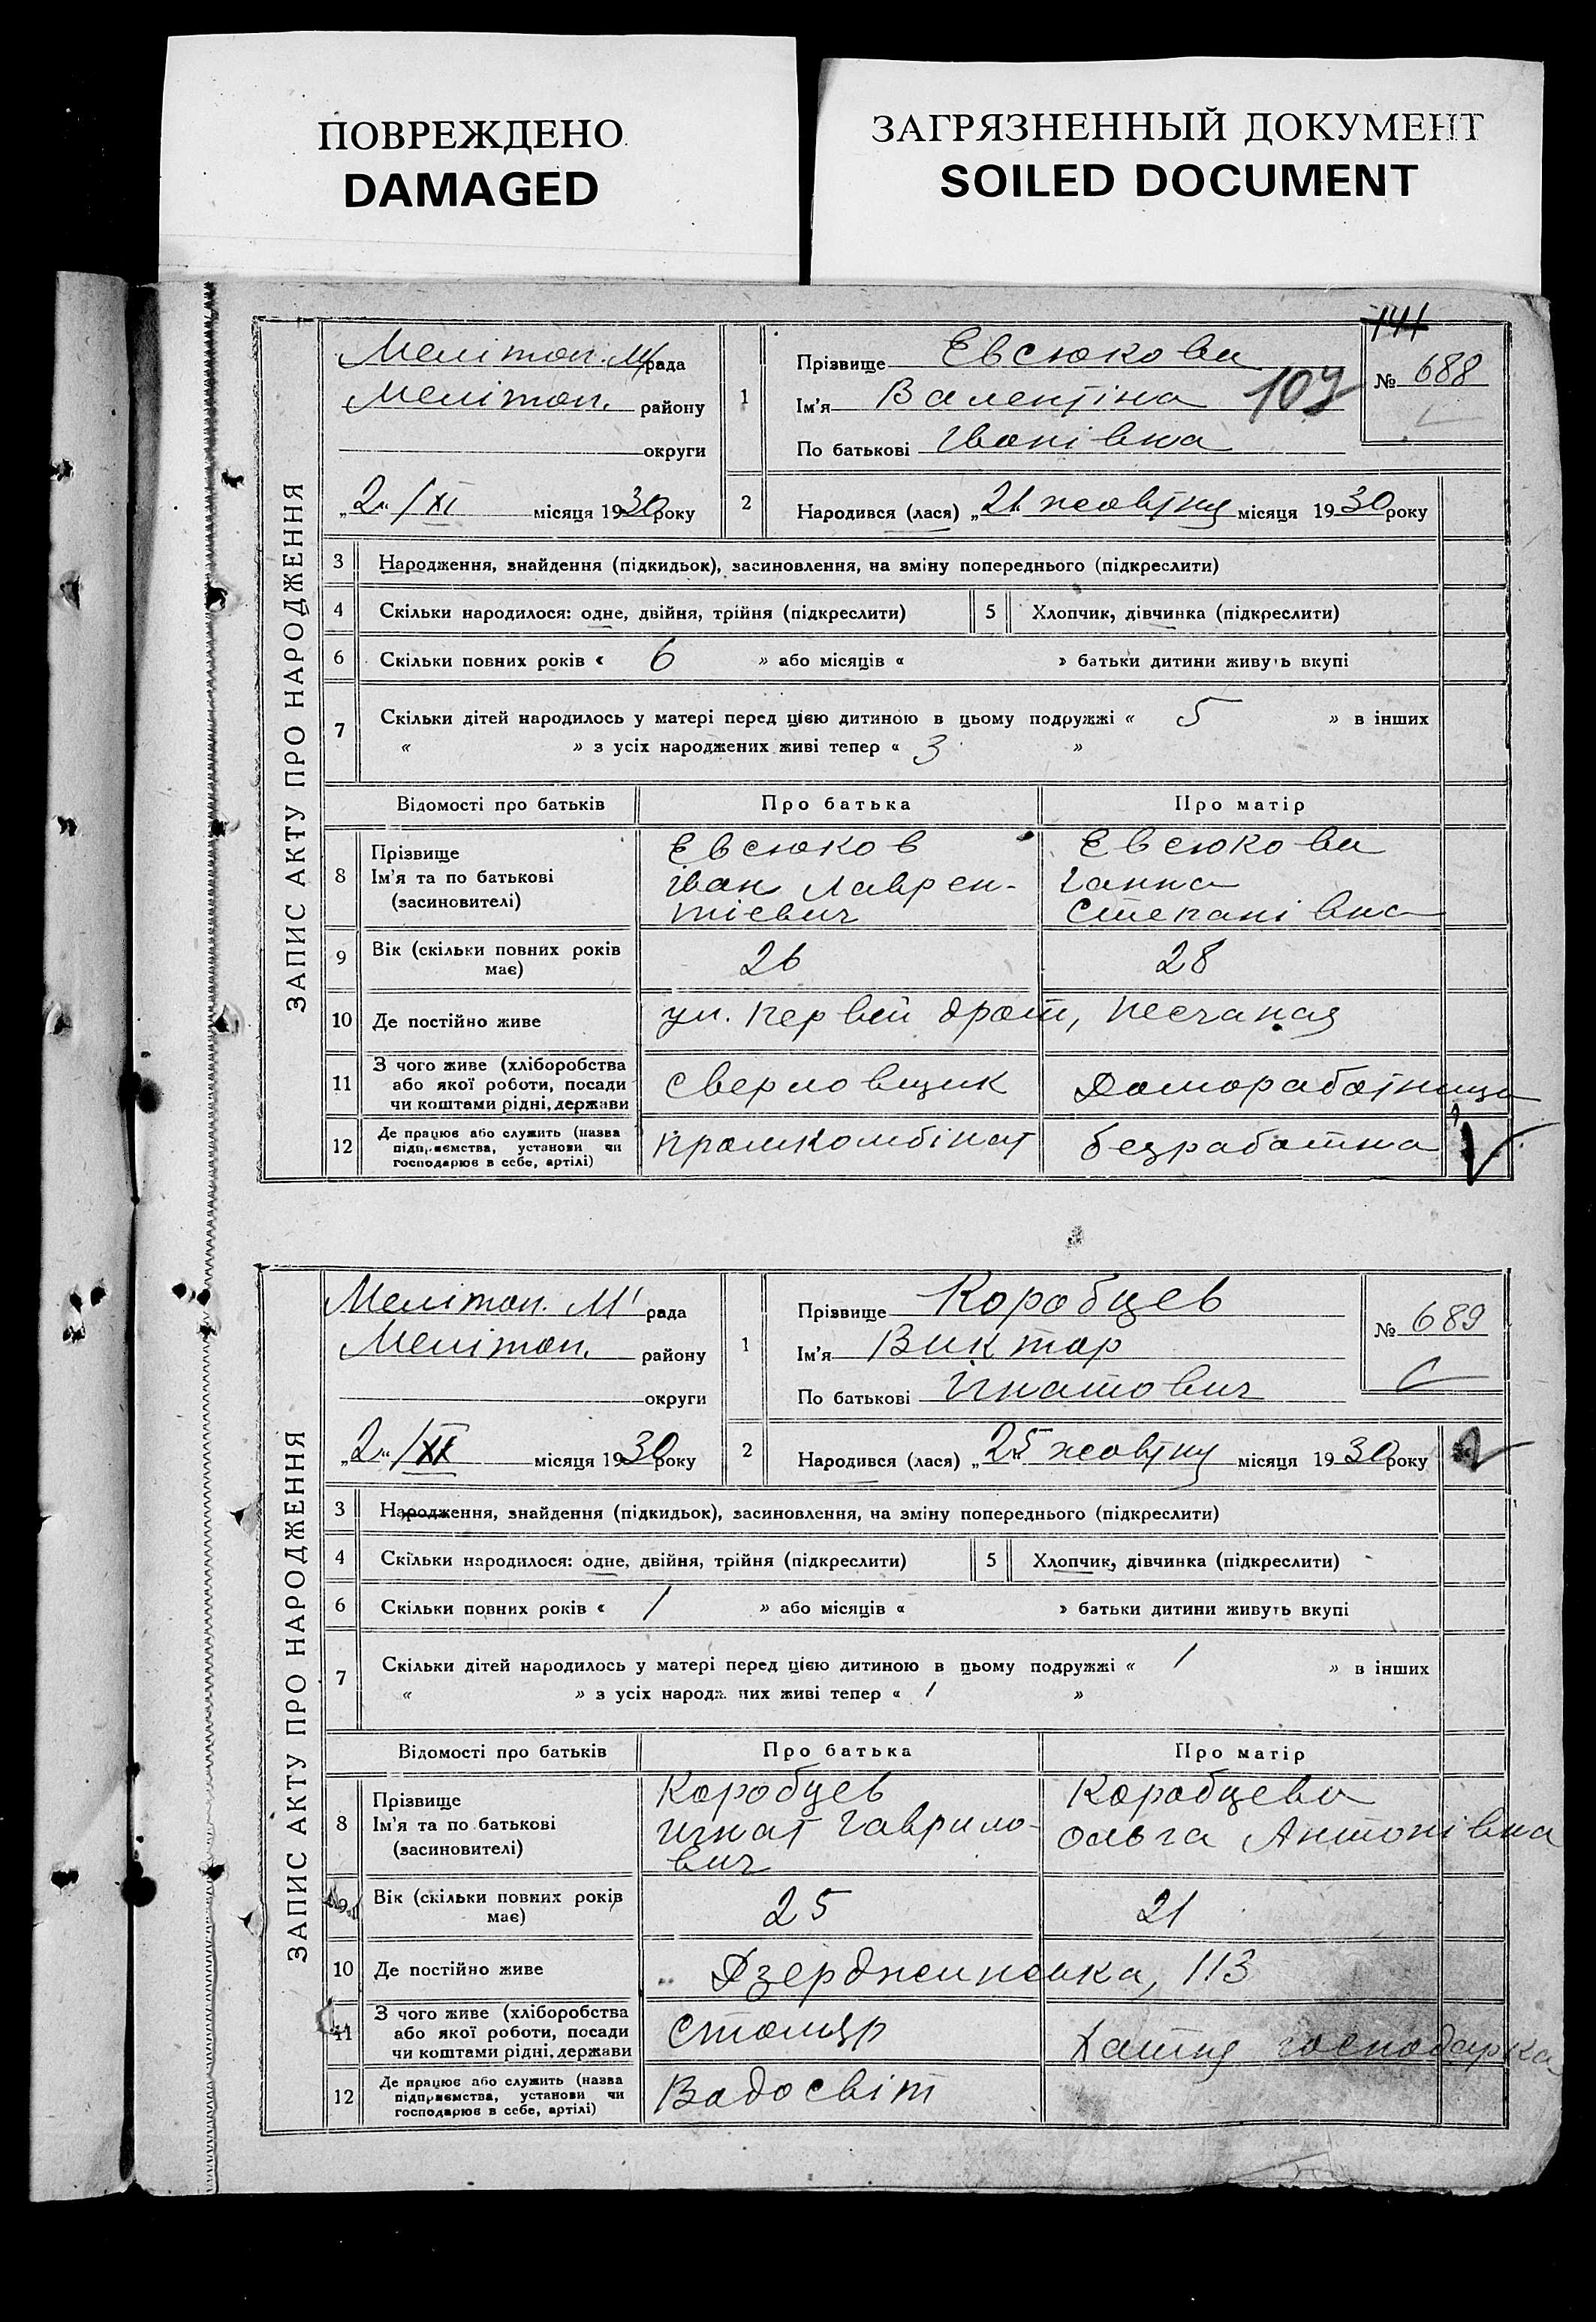 ПОВРЕЖДЕНО
DAMAGED
ЗАГРЯЗНЕННЫЙ ДОКУМЕНТ
SOILED DOCUMENT
141
ЗАПИС АКТУ ПРО НАРОДЖЕННЯ
Мелітоп. М/рада
Мелітоп. району
округи
„2“/XI місяця 1930 року
1
Прізвище Евсюкова
Ім'я Валентіна 107
По батькові Іванівна
№ 688
2
Народився (лася) „21 жовтня місяця 1930 року
3 Народження, знайдення (підкидьок), засиновлення, на зміну попереднього (підкреслити)
4 Скільки народилося: одне, двійня, трійня (підкреслити) 5 Хлопчик, дівчинка (підкреслити)
6 Скільки повних років « 6 » або місяців « » батьки дитини живуть вкупі
7 Скільки дітей народилось у матері перед цією дитиною в цьому подружжі « 5 » в інших
« » з усіх народжених живі тепер « 3 »
Відомості про батьків Про батька Про матір
8 Прізвище
Ім'я та по батькові
(засиновителі)
Евсюков
Іван Лаврен-
тієвич
Евсюкова
Ганна
Степанівна
9 Вік (скільки повних років
має) 26 28
10 Де постійно живе ул. Первей драт, Песчаная
11 З чого живе (хліборобства
або якої роботи, посади
чи коштами рідні, держави
Сверловщик Доморабатница
12 Де працює або служить (назва
підприємства, установи чи
господарює в себе, артілі)
промкомбінат безрабатна
ЗАПИС АКТУ ПРО НАРОДЖЕННЯ
Мелітоп. М' рада
Мелітоп. району
округи
„2“/XI місяця 1930 року
1
Прізвище Коробцев
Ім'я Виктор
По батькові Ігнатович
№ 689
2
Народився (лася) „25 жовтня місяця 1930 року
3 Народження, знайдення (підкидьок), засиновлення, на зміну попереднього (підкреслити)
4 Скільки народилося: одне, двійня, трійня (підкреслити) 5 Хлопчик, дівчинка (підкреслити)
6 Скільки повних років « 1 » або місяців « » батьки дитини живуть вкупі
7 Скільки дітей народилось у матері перед цією дитиною в цьому подружжі « 1 » в інших
« » з усіх народжених живі тепер « 1 »
Відомості про батьків Про батька Про матір
8 Прізвище
Ім'я та по батькові
(засиновителі)
Коробцев
Игнат Гаврило-
вич
Коробцева
Ольга Антонівна
9 Вік (скільки повних років
має) 25 21
10 Де постійно живе Дзержинська, 113
11 З чого живе (хліборобства
або якої роботи, посади
чи коштами рідні, держави
Столяр Хатня господарка
12 Де працює або служить (назва
підприємства, установи чи
господарює в себе, артілі)
Вадосвіт